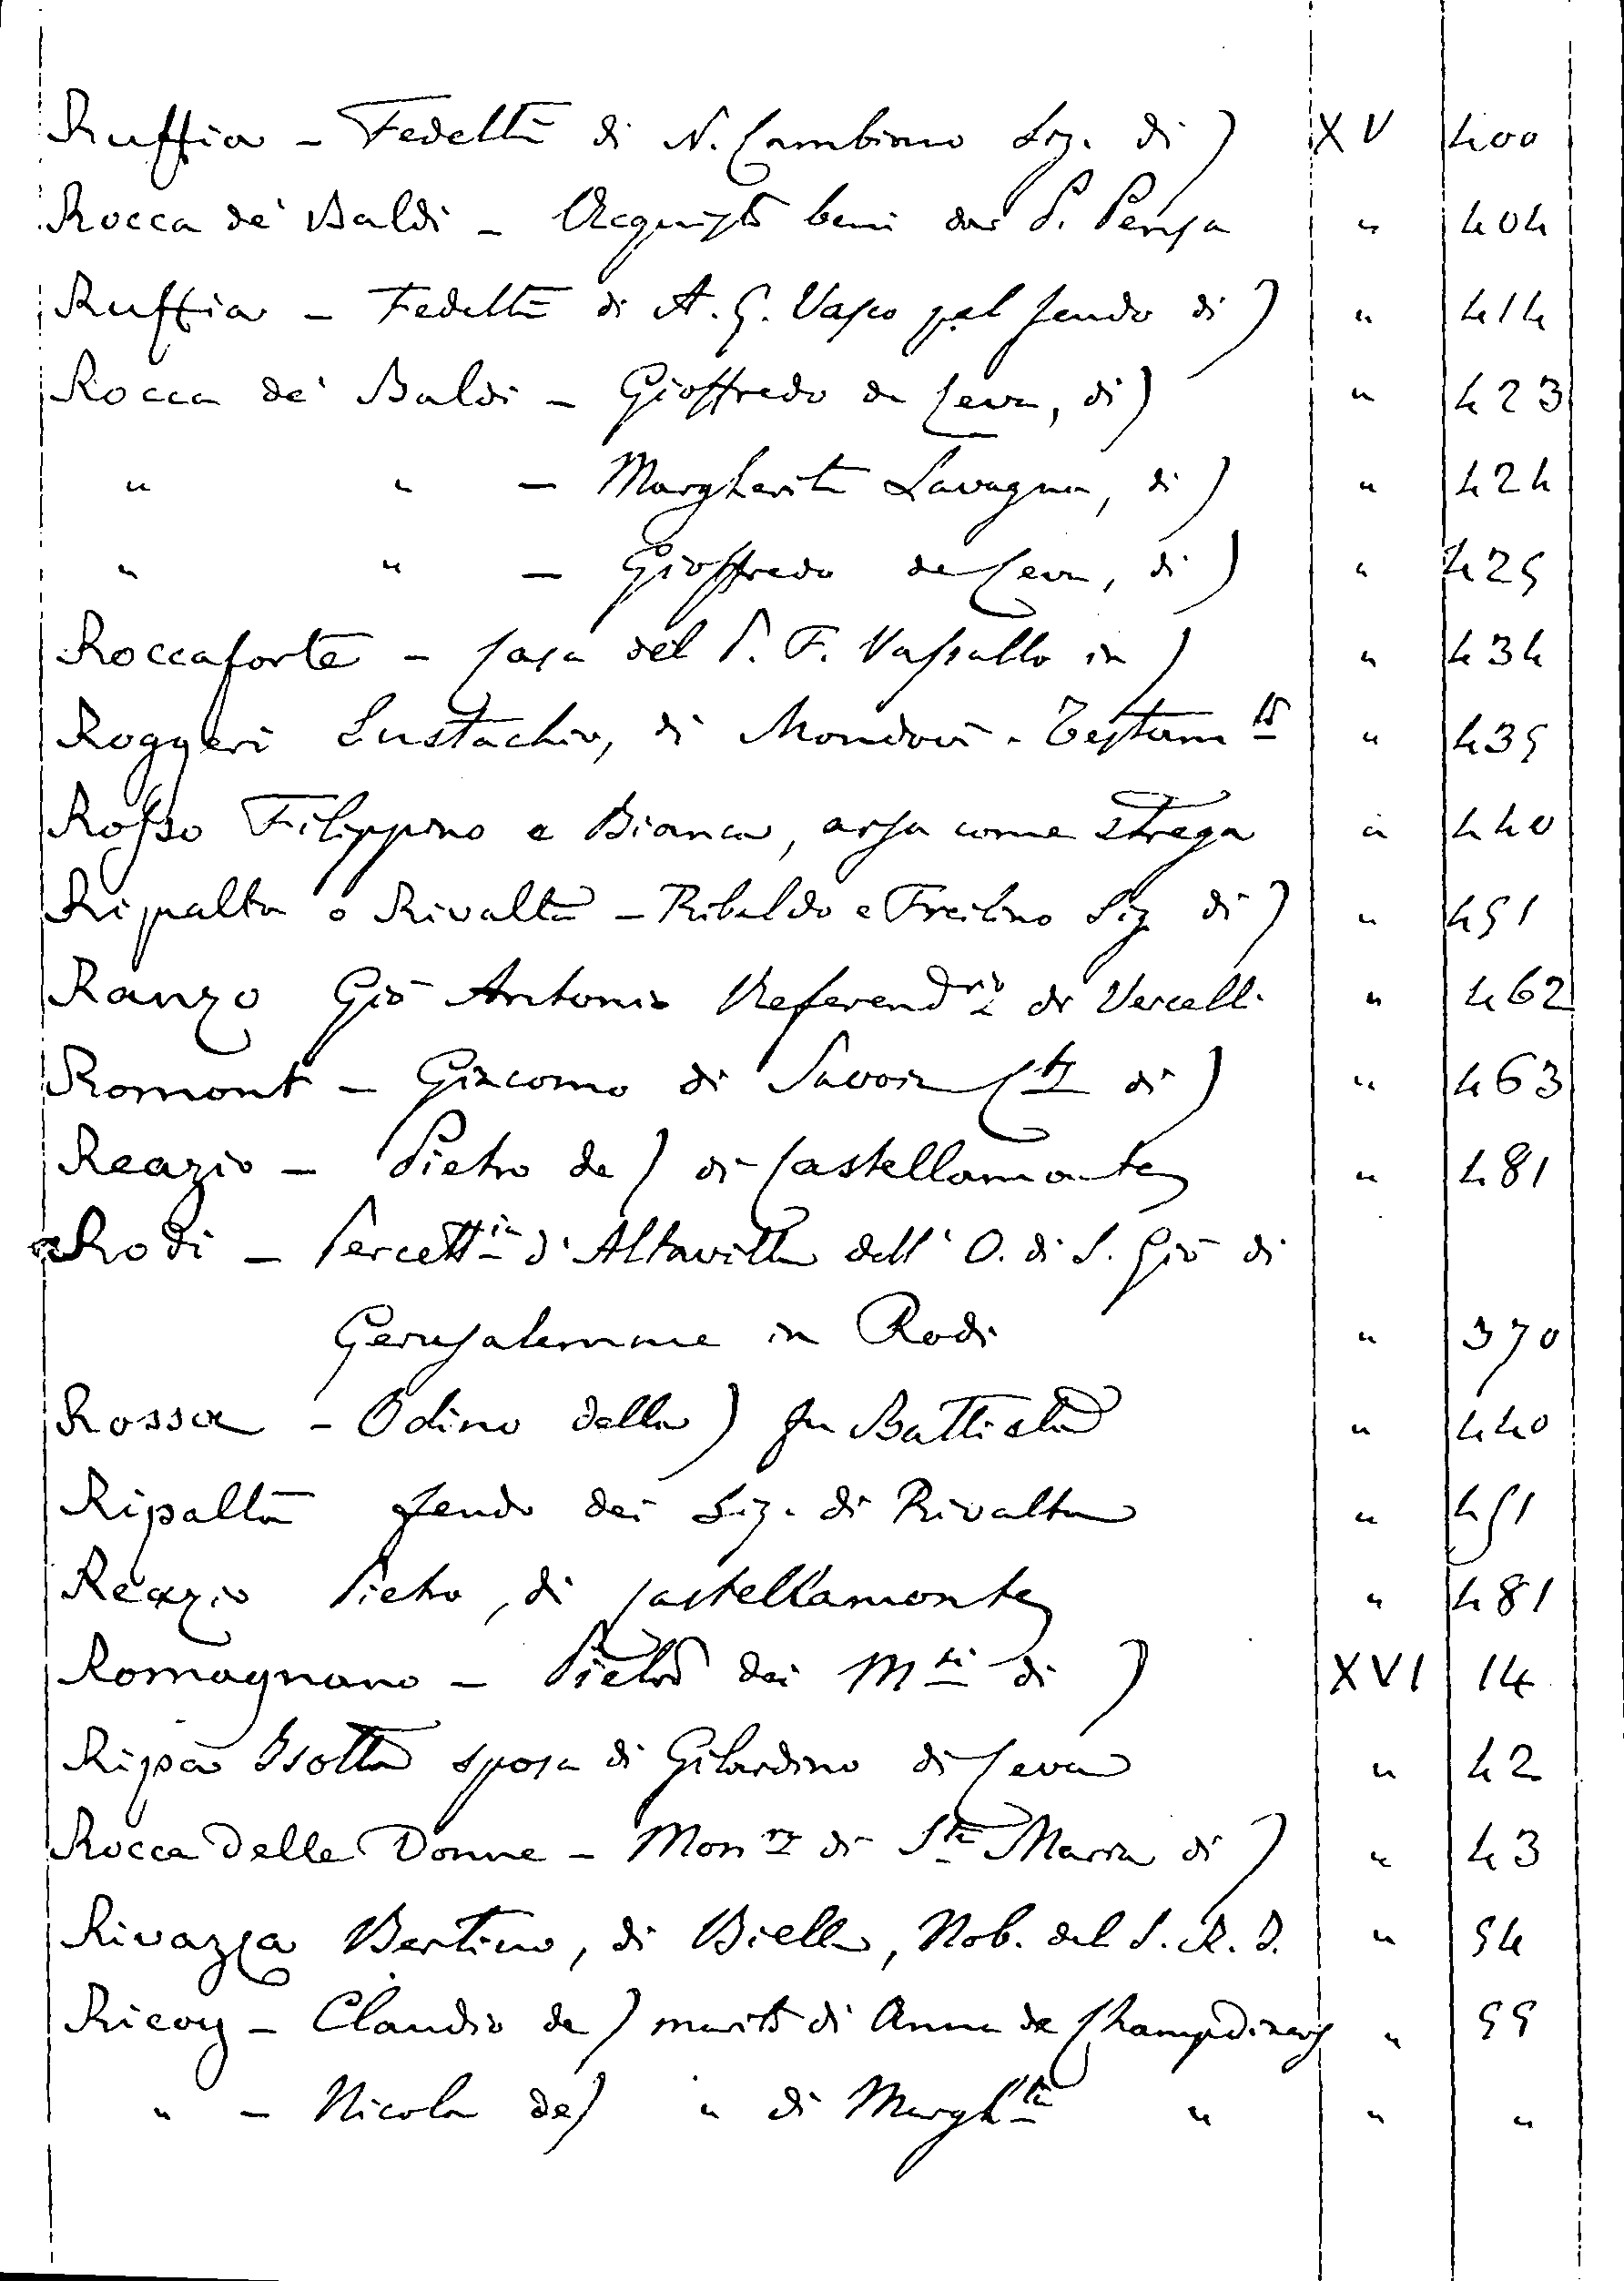 Ruffia - Fedeltà di N. Cambiano Sig. di) XV 400
Rocca de' Baldi - Acquisto beni da P. Pensa " 404
Ruffia - Fedeltà di A. G. Vasco pel feudo di) " 414
Rocca de' Baldi - Gioffredo da Ceva, di) " 423
" " - Margherita Lavagna, di) " 424
" " - Gioffredo de Ceva, di) " 425
Roccaforte - Casa del P. F. Vassallo in) " 434
Roggeri Eustachio, di Mondovì - Testam to " 435
Rosso Filippino e Bianca, arsa come strega " 440
Ripalta o Rivalta - Ribaldo e Freilino Sig. di) " 451
Ranzo Gio Antonio Referend rio di Vercelli " 462
Romont - Giacomo di Savoia C te di) " 463
Reazio - Pietro de) di Castellamonte " 481
Rodi - Percett ia d'Altavilla dell'O. di S. Gio di
Gerusalemme in Rodi " 370
Rossa - Odino della) fu Battista " 440
Ripalta feudo dei Sig. di Rivalta " 451
Reazio Pietro, di Castellamonte " 481
Romagnano - Pietro dei M si di) XVI 14
Ripa Isotta sposa di Gilardino di Ceva " 42
Rocca delle Donne - Mon ro di S ta Maria di) " 43
Rivazza Bertino, di Biella, Nob. del S. R. I. " 54
Ricoy - Claudio de) marito di Anna de " 55
" - Nicola de) " di Margh ta " " "